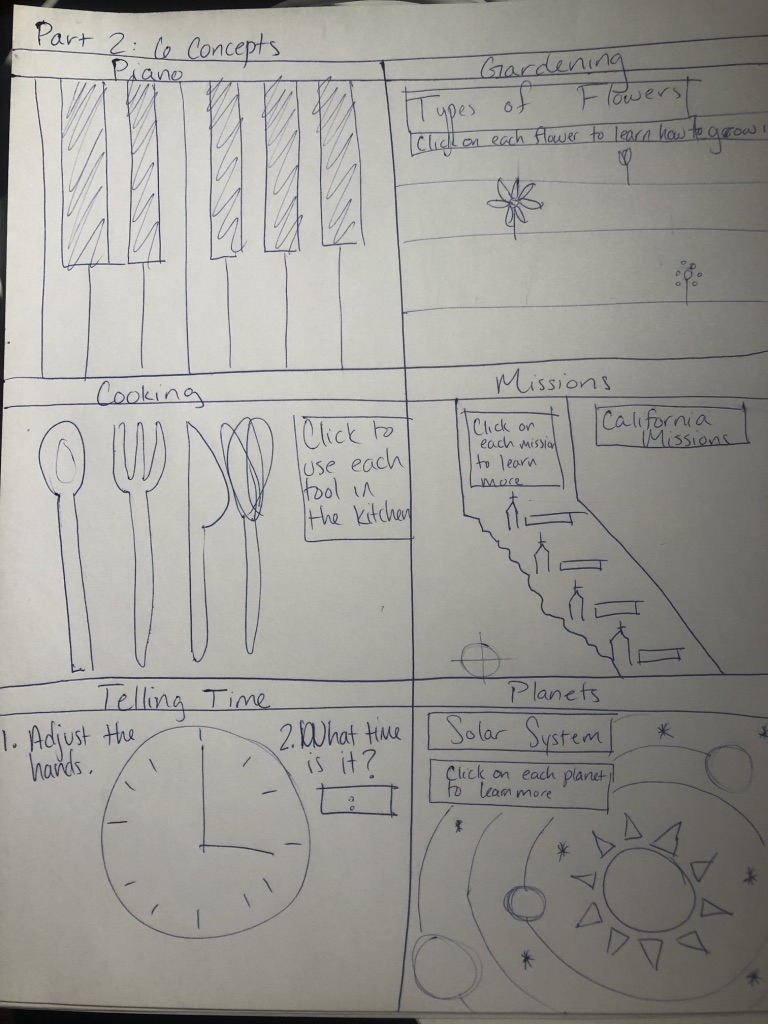 Part 2: 6 Concepts
Piano
Gardening
Types of Flowers
Click on each flower to learn how to grow
Cooking
Click to
use each
tool in
the kitchen
Missions
Click on
each mission
to learn
more
California
Missions
Telling Time
1. Adjust the
hands.
2. What time
is it?
:
Planets
Solar System
Click on each planet
to learn more